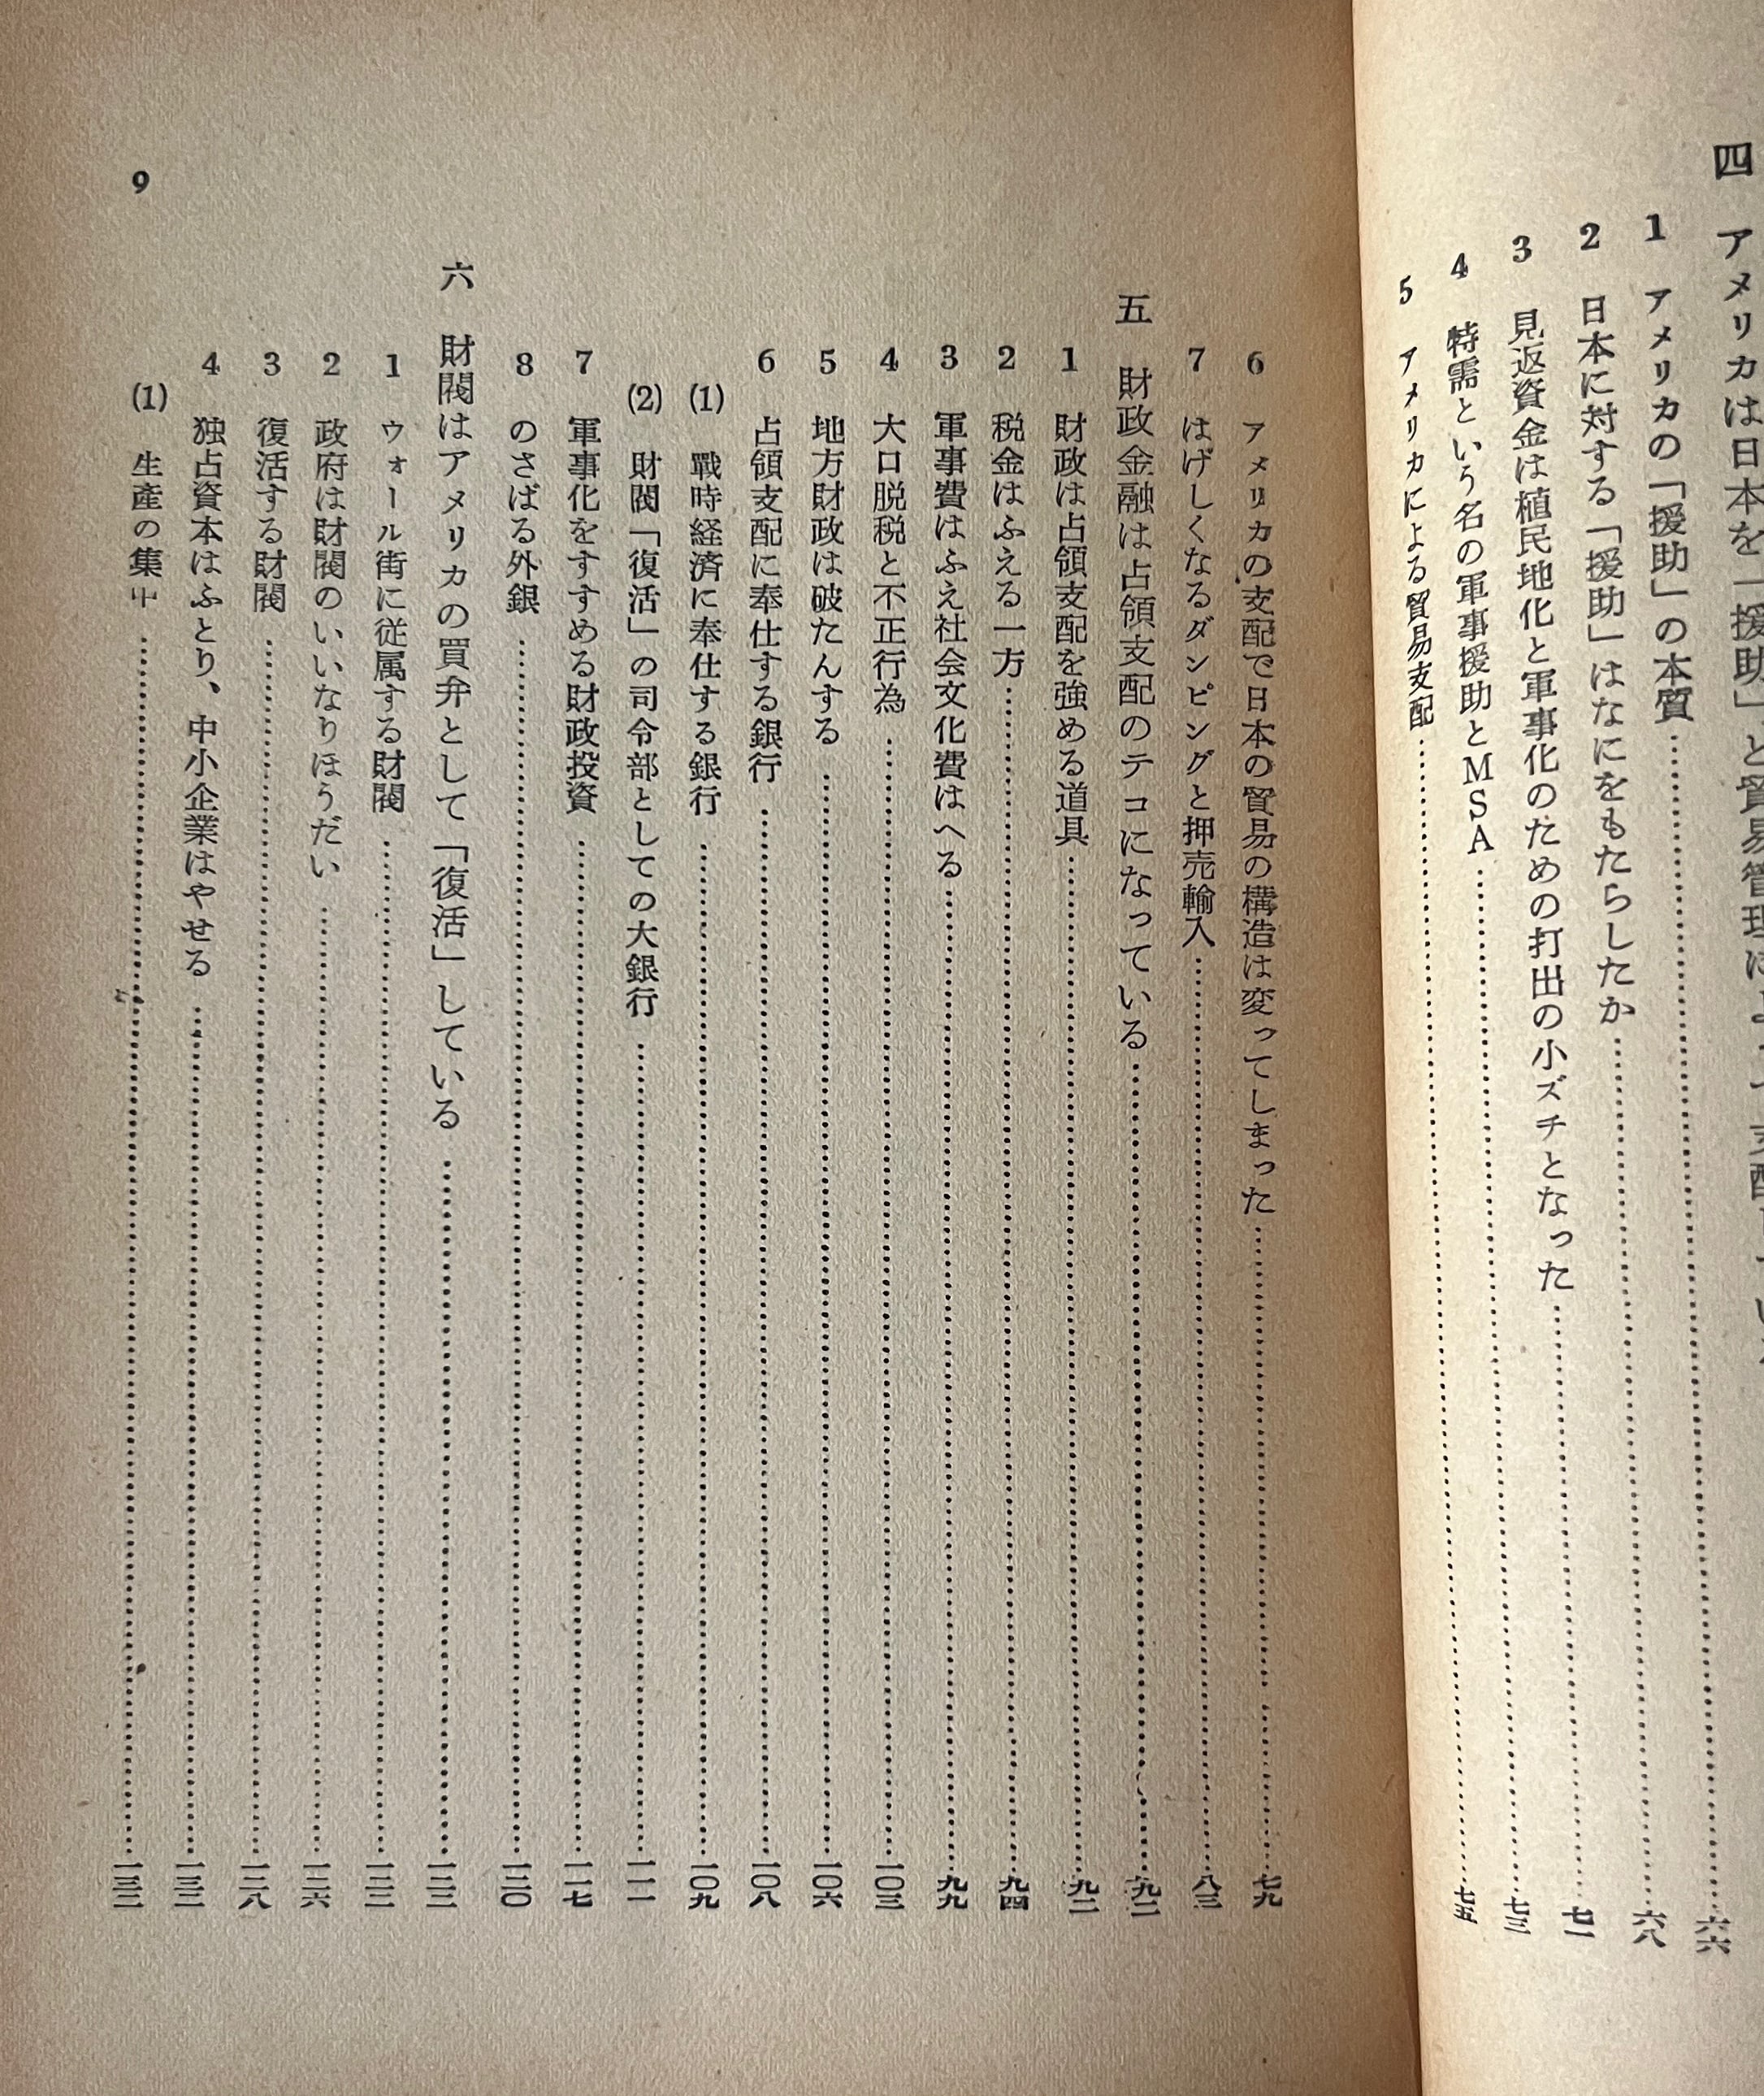 四 アメリカは日本を「援助」と貿易管理によって支配している
1 アメリカの「援助」の本質……六六
2 日本に対する「援助」はなにをもたらしたか……六八
3 見返資金は植民地化と軍事化のための打出の小ズチとなった……七一
4 特需という名の軍事援助とMSA……七三
5 アメリカによる貿易支配……七五
6 アメリカの支配で日本の貿易の構造は変ってしまった……七九
7 はげしくなるダンピングと押売輸入……八三
五 財政金融は占領支配のテコになっている……九二
1 財政は占領支配を強める道具……九二
2 税金はふえる一方……九四
3 軍事費はふえ社会文化費はへる……九九
4 大口脱税と不正行為……一〇三
5 地方財政は破たんする……一〇六
6 占領支配に奉仕する銀行……一〇八
(1) 戰時経済に奉仕する銀行……一〇九
(2) 財閥「復活」の司令部としての大銀行……一一一
7 軍事化をすすめる財政投資……一一七
8 のさばる外銀……一二〇
六 財閥はアメリカの買弁として「復活」している……一二三
1 ウォール街に従属する財閥……一二三
2 政府は財閥のいいなりほうだい……一二六
3 復活する財閥……一二八
4 独占資本はふとり、中小企業はやせる……一三二
(1) 生産の集中……一三二
9